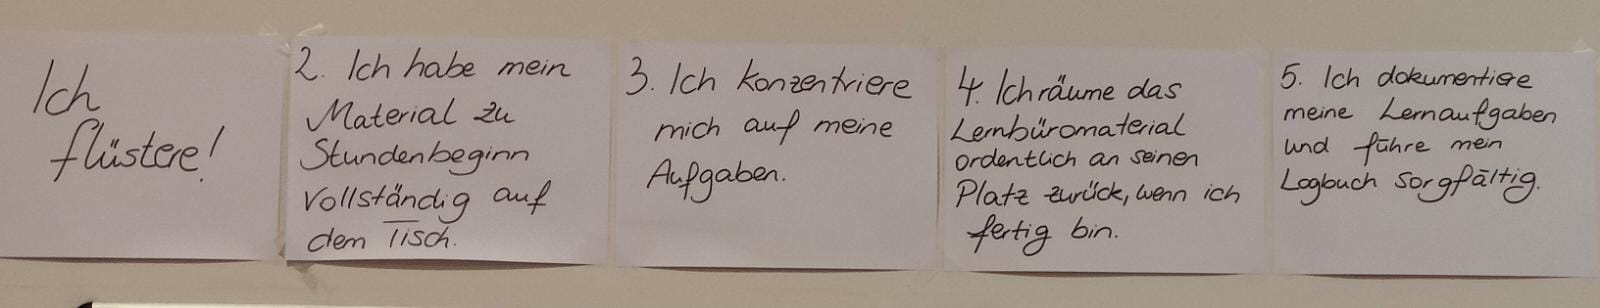 Ich
flüstere!
2. Ich habe mein
Material zu
Stundenbeginn
vollständig auf
dem Tisch.
3. Ich konzentriere
mich auf meine
Aufgaben.
4. Ich räume das
Lernbüromaterial
ordentlich an seinen
Platz zurück, wenn ich
fertig bin.
5. Ich dokumentiere
meine Lernaufgaben
und führe mein
Logbuch sorgfältig.